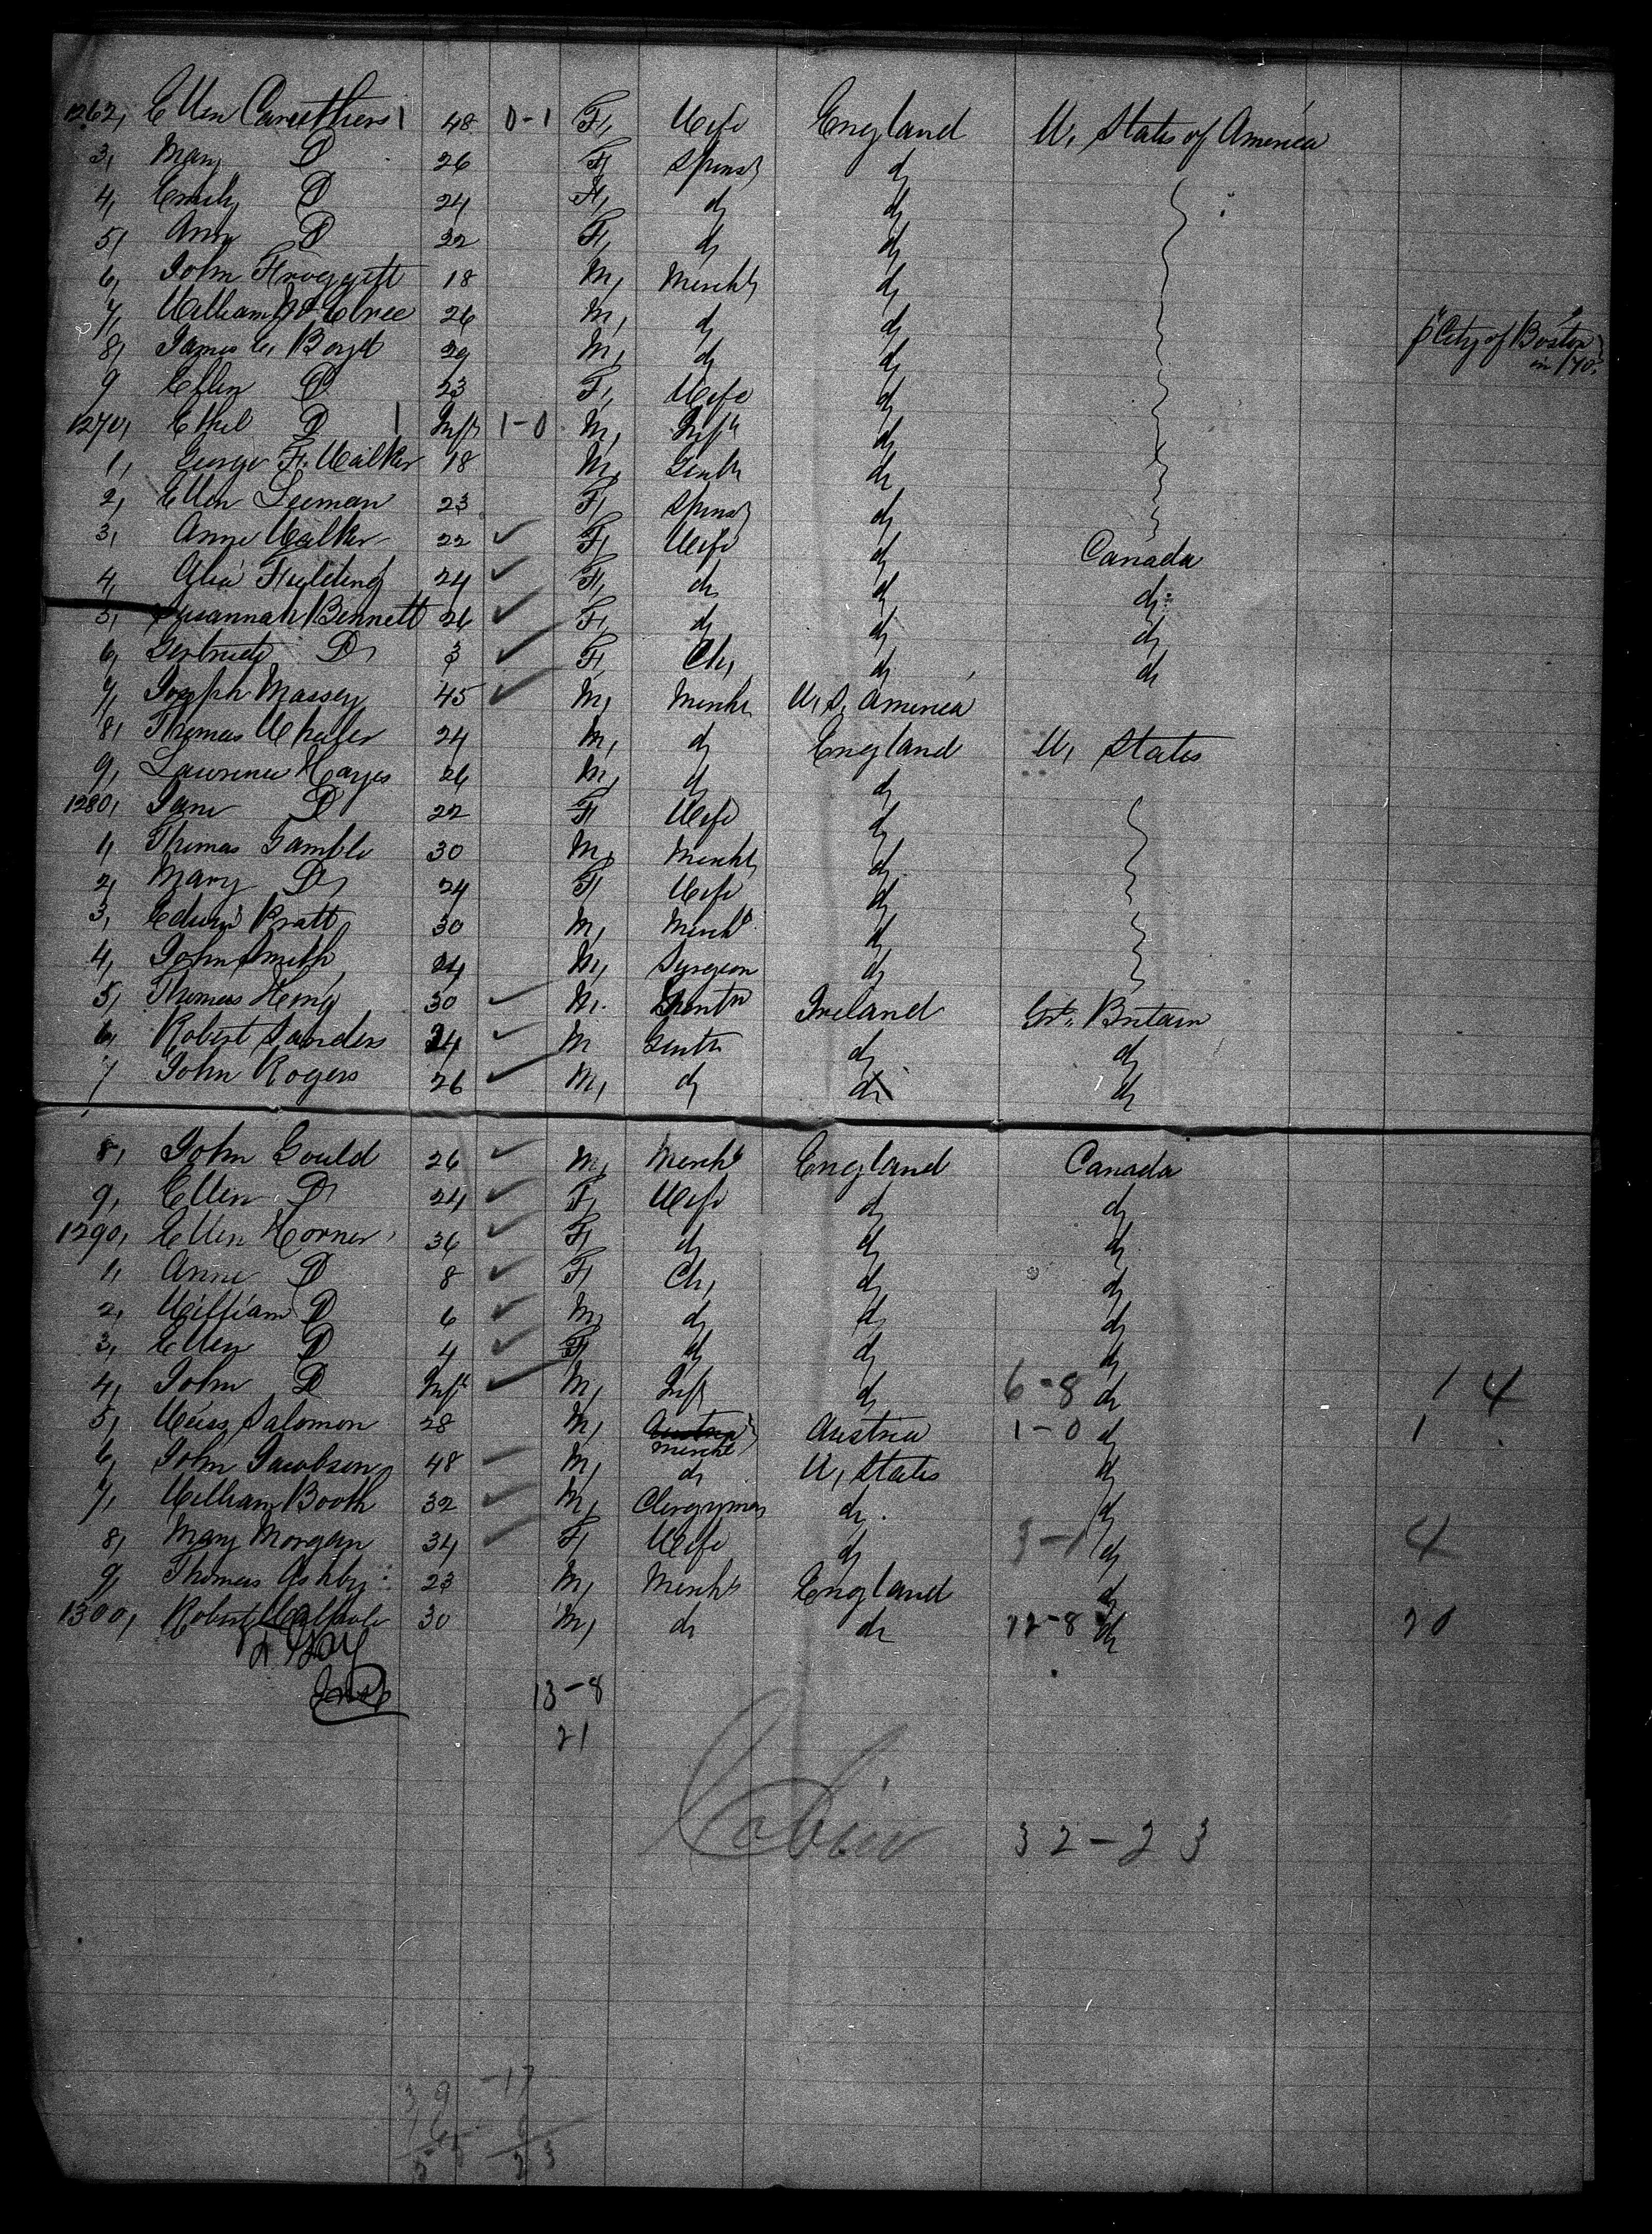 1262, Ellen Caruthers 1 48 0-1 F, Wife England U, States of America
3, Mary D 26 F, Spinsr do
4, Emily D 24 F, do do
5, Ann D 22 F, do do
6, John Froggitt 18 M, Mercht do
7, William 26 M, do do
8, James C, Boyd 29 M, do do p "City of Boston" in /70.
9 Ellen D 23 F, Wife do
1270, Ethel D 1 Inft 1-0 M, Inft do
1, George F. Walker 18 M, Gentn do
2, Ellen Leeman 23 F, Spinsr do
3, Anne Walker 22 ✓ F, Wife do Canada
4, Alice Fielding 24 ✓ F, do do do
5, Susannah Bennett 26 ✓ F, do do do
6, Gertrude D 3 ✓ F, Ch, do do
7, Joseph Massey 45 ✓ M, Mercht U, S, America
8, Thomas Whaler 24 M, do England U, States
9, Lawrence Hayes 26 M, do do
1280, Jane D 22 F Wife do
1, Thomas Gamble 30 M, Mercht do
2, Mary D 24 F Wife do
3, Edwin Pratt 30 M, Mercht do
4, John Smith 24 M, Surgeon do
5, Thomas King 30 ✓ M. Gentn Ireland Gt. Britain
6, Robert Sanders 24 ✓ M Gentn do do
7 John Rogers 26 ✓ M, do do do
8, John Gould 26 ✓ M, Mercht England Canada
9, Ellen D 24 ✓ F, Wife do do
1290, Ellen Horner 36 ✓ F, do do do
1, Anne D 8 ✓ F, Ch, do do
2, William D 6 ✓ M, do do do
3, Ellen D 4 ✓ F, do do do
4, John D Inft ✓ M, Inft do 6-8 do 14
5, Weiss Salomon 28 M, Austria Mercht Austria 1-0 do 1
6, John Jacobson 48 ✓ M, do U, States do
7, William Booth 32 ✓ M, Clergyman do. do
8, Mary Morgan 34 ✓ F, Wife do 3-1 do 4
9, Thomas Ashby 23 M, Mercht England do
1300, Robert 30 M, do do 12-8 do 20
13-8
21
Cabin 32-23
39 -17
16 6
55 23